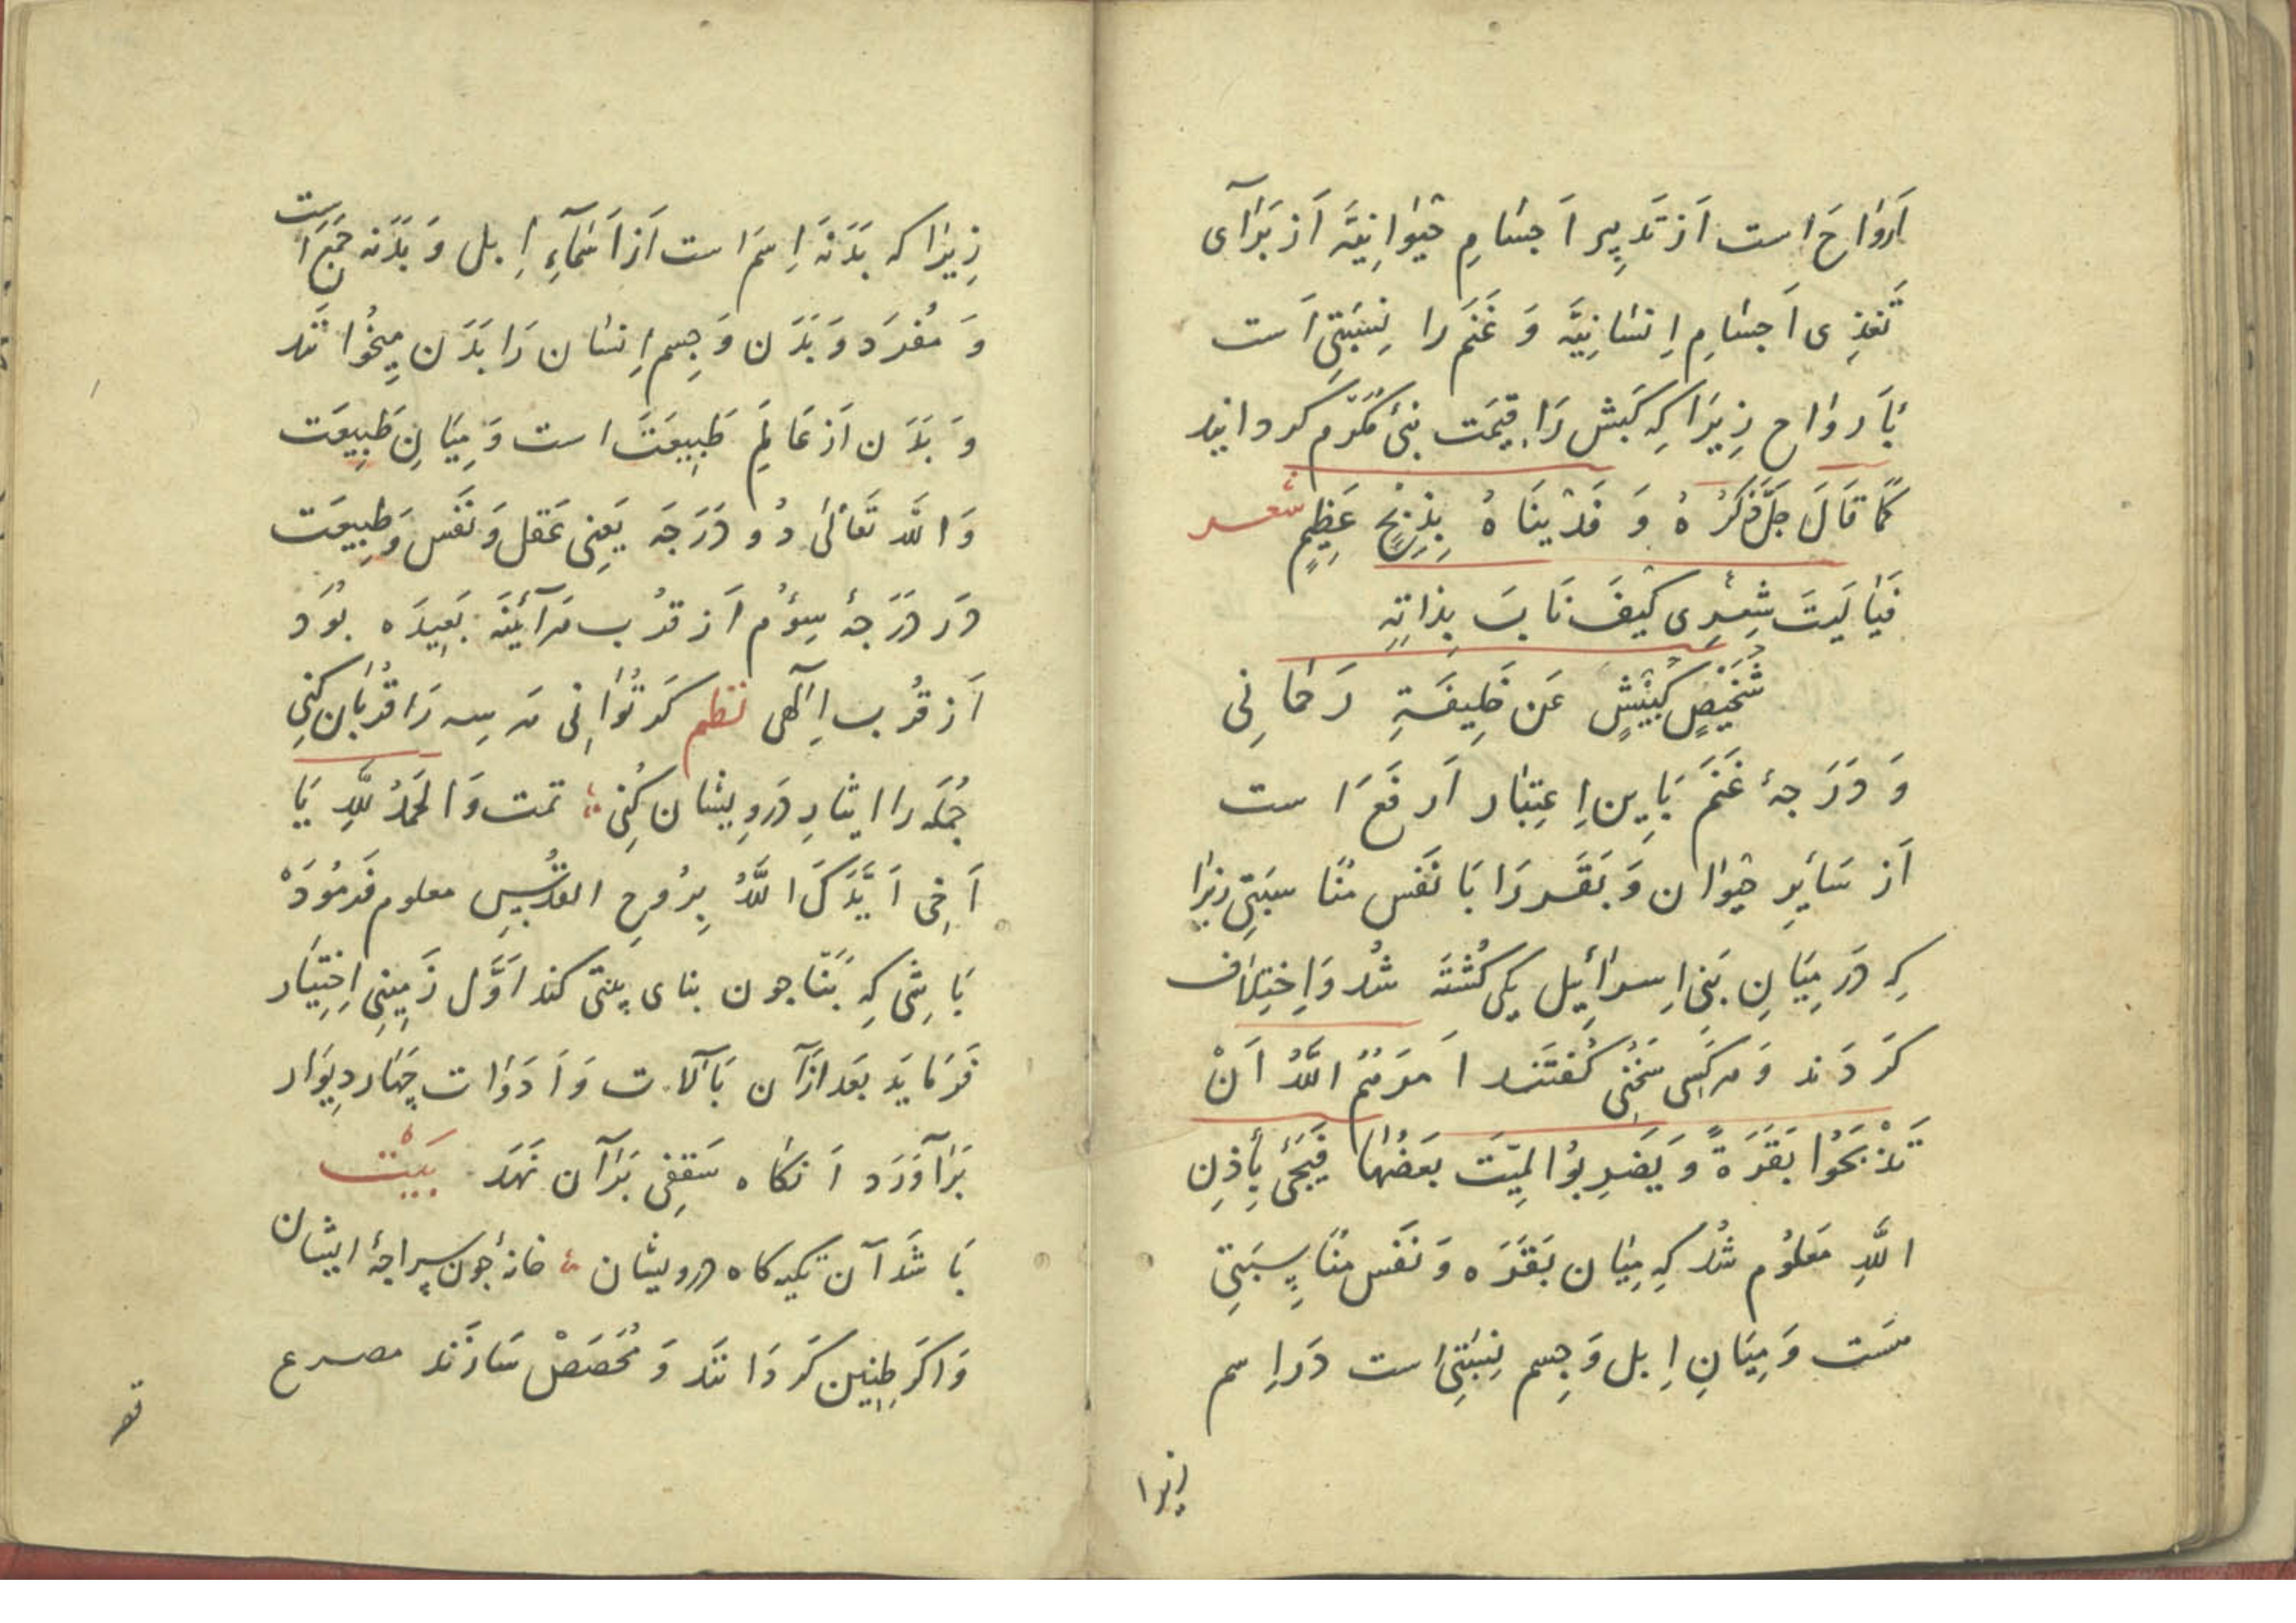 اَرْوَاحَ است اَز تَدبِیر اَجسَامِ حَیْوَانِیَّه اَز بَرَآیِ
تَغَذِی اَجسَامِ اِنسَانِیَّه وَ غَنَم را نِسبَتِی اَست
بَاَروَاح زِیرَا کِه کَبش رَا قِیمَت نَبی مُکَرَّم کردانید
کَمَا قَالَ جَلَّ ذِکرُهُ وَ فَدَیْنَاهُ بِذِبْحٍ عَظِیمٍ شعر
فَیَا لَیتَ شِعْرِی کَیفَ نَابَ بِذَاتِهِ
شُخَیْصٍ کُبَیْشٍ عَن خَلِیفَةِ رَحمَانِی
وَ دَرَجهٔ غَنَم بَایِن اِعتِبَار اَرفَعَ است
اَز سَایِرِ حَیْوَان وَ بَقَر رَا بَا نَفس مُنَاسبَتِی زیرا
کِه دَر مِیَانِ بَنِی اِسرَائِیل یکی کُشتَه شُد وَ اِختِلَاف
کَردَند وَ هَرکَسِی سَخُنِی کُفتَند اَمَرَتُمُ اللّهُ اَنْ
تَذْبَحُوا بَقَرَةً وَ یَضرِبُوا لمِیَّت بَعَضُهَا فَیَحیَٔ بِأِذنِ
اللّهِ مَعلُوم شُد کِه مِیَان بَقَرَه وَ نَفس مُنَاسِبَتِی
هَست وَ مِیَانِ اِبل وَ جِسم نِسبَتِی است دَر اِسم
زیرا
زِیرَا که بَدَنَهَ اِسمَ است اَز اَسمَآءِ اِبل وَ بَدَنَه جَمعَ است
وَ مُفرَد وَ بَدَن وَ جِسمِ اِنسَان رَا بَدَن مِیخُوانَند
وَ بَدَن اَز عَالَمِ طَبِیعَتَ است وَ مِیَانِ طَبِیعَت
وَ اللّه تَعَالیٰ دُو دَرَجَه یَعنِی عَقل وَ نَفس وَ طَبِیعَت
دَر دَرَجهٔ سِؤُم اَز قُرب هَرآئِنَه بَعِیدَه بُوَد
اَز قُرب اِلٓهی نظم کَر تُوَانِی هَر سِه رَا قُربَان کنِی
جُملَه را ایثارِ دَروِیشَان کُنِی تمت وَ الحَمدُ لِلّهِ یَا
اَخِی اَیَّدَکَ اللّهُ بِرُوحِ القُدُسِ معلوم فَرمُودَهْ
بَاشِی کِه بَنَّا جون بنای بیتی کند اَوَّل زَمِینِی اِختِیَار
فَرمَایَد بَعد اَزآن بَآلات وَ اَدَوَات چهَار دِیوَار
بَرآوَرَد اَنکَاه سَقفِی بَرآن نَهَد بَیْتْ
بَاشَد آن تکیه کاه درویشان خانهٔ جون سراجهٔ ایشان
وَ اکَر طِنِین کَردَانَند وَ مُخَصَصْ سَازَند مصرع